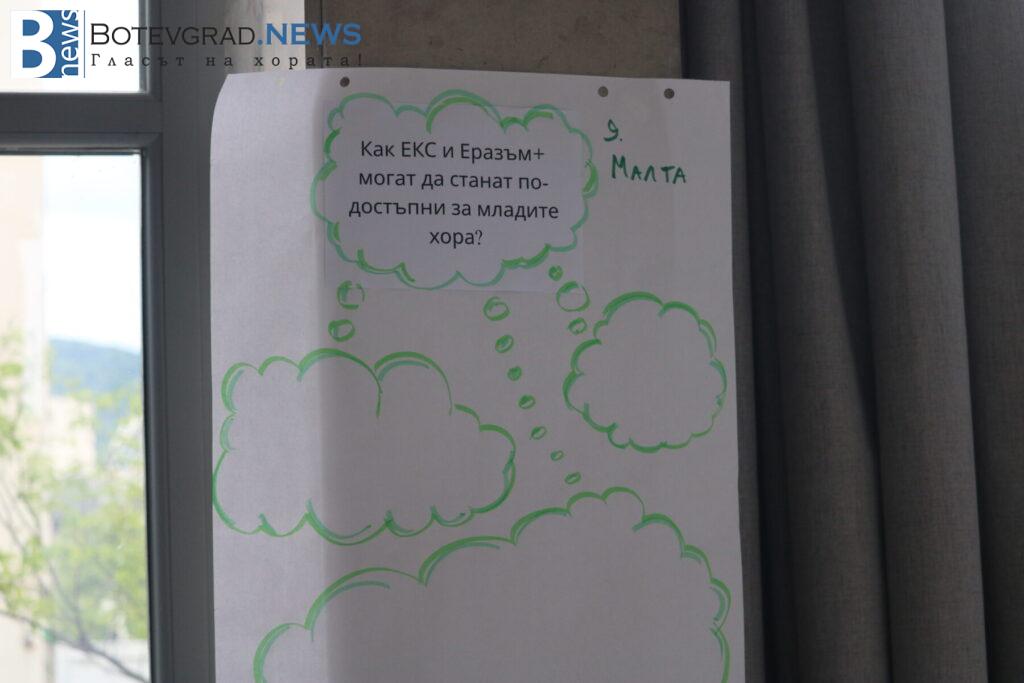 B news BOTEVGRAD.NEWS
Гласът на хората!
Как ЕКС и Еразъм+
могат да станат по-
достъпни за младите
хора?
9.
МАЛТА